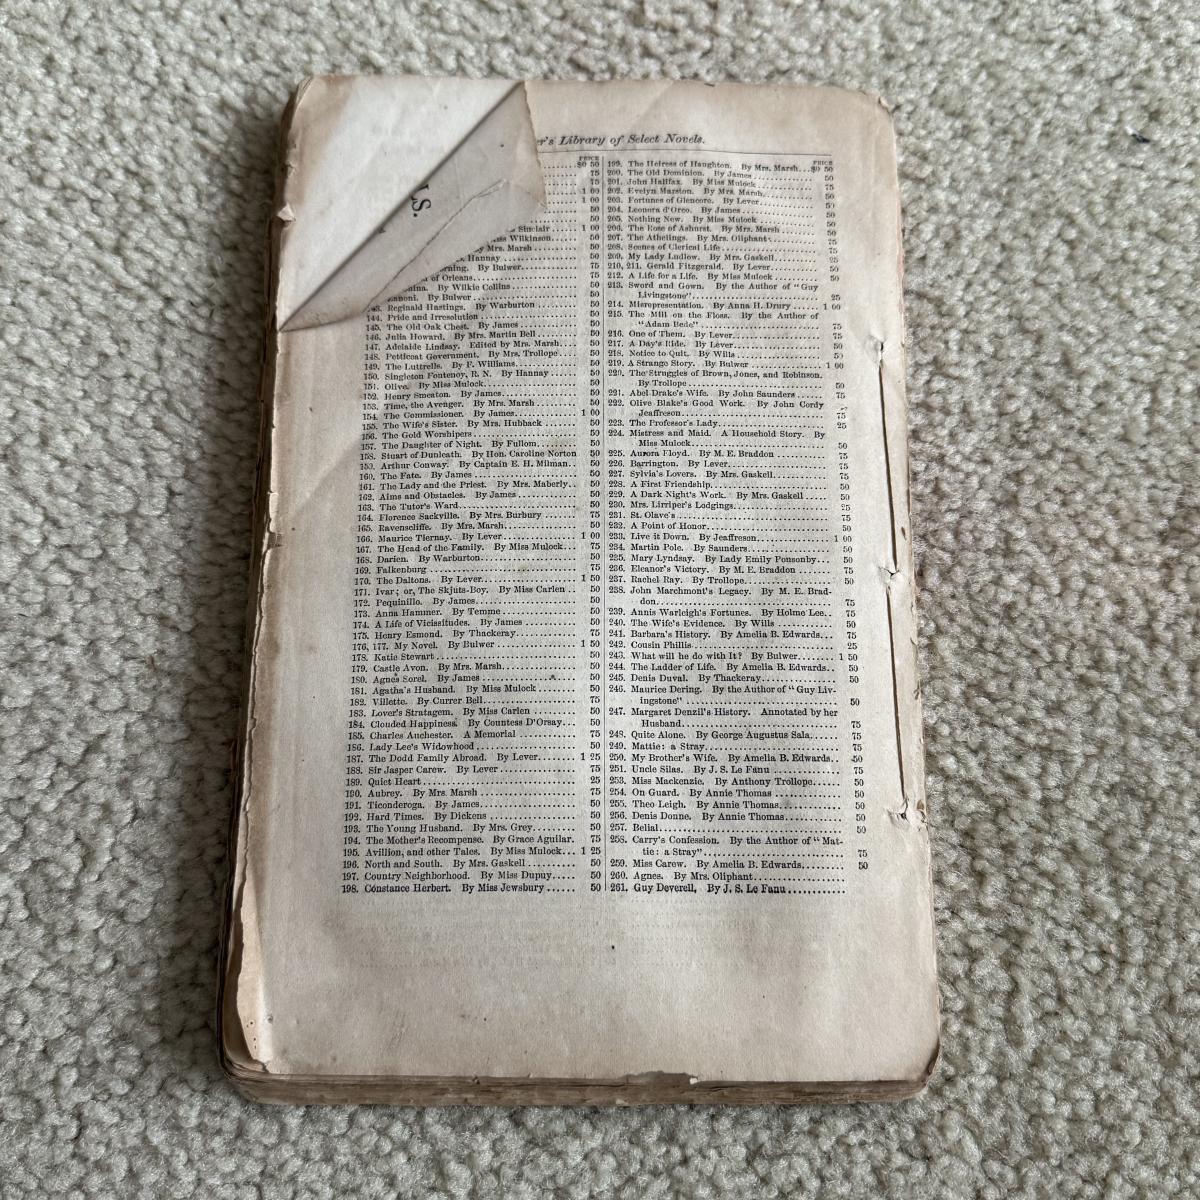 er's Library of Select Novels.
LS.
PRICE
$0 50
75
1 00
1 00
50
50
Sinclair 1 00
Wilkinson 50
Mrs. Marsh 50
Hannay 50
By Bulwer. 75
of Orleans 50
By Wilkie Collins 50
By Bulwer 50
Reginald Hastings. By Warburton 50
144. Pride and Irresolution 50
145. The Old Oak Chest. By James 50
146. Julia Howard. By Mrs. Martin Bell 50
147. Adelaide Lindsay. Edited by Mrs. Marsh 50
148. Petticoat Government. By Mrs. Trollope 50
149. The Luttrells. By F. Williams 50
150. Singleton Fontenoy, R. N. By Hannay 50
151. Olive. By Miss Mulock 50
152. Henry Smeaton. By James 50
153. Time, the Avenger. By Mrs. Marsh 50
154. The Commissioner. By James 1 00
155. The Wife's Sister. By Mrs. Hubback 50
156. The Gold Worshipers 50
157. The Daughter of Night. By Fullom 50
158. Stuart of Dunleath. By Hon. Caroline Norton 50
159. Arthur Conway. By Captain E. H. Milman 50
160. The Fate. By James 50
161. The Lady and the Priest. By Mrs. Maberly 50
162. Aims and Obstacles. By James 50
163. The Tutor's Ward 50
164. Florence Sackville. By Mrs. Burbury 75
165. Ravenscliffe. By Mrs. Marsh 50
166. Maurice Tiernay. By Lever 1 00
167. The Head of the Family. By Miss Mulock 75
168. Darien. By Warburton 50
169. Falkenburg 75
170. The Daltons. By Lever 1 50
171. Ivar; or, The Skjuts-Boy. By Miss Carlen 50
172. Pequinillo. By James 50
173. Anna Hammer. By Temme 50
174. A Life of Vicissitudes. By James 50
175. Henry Esmond. By Thackeray 75
176, 177. My Novel. By Bulwer 1 50
178. Katie Stewart 50
179. Castle Avon. By Mrs. Marsh 50
180. Agnes Sorel. By James 50
181. Agatha's Husband. By Miss Mulock 50
182. Villette. By Currer Bell 75
183. Lover's Stratagem. By Miss Carlen 50
184. Clouded Happiness. By Countess D'Orsay 50
185. Charles Auchester. A Memorial 75
186. Lady Lee's Widowhood 50
187. The Dodd Family Abroad. By Lever 1 25
188. Sir Jasper Carew. By Lever 75
189. Quiet Heart 25
190. Aubrey. By Mrs. Marsh 75
191. Ticonderoga. By James 50
192. Hard Times. By Dickens 50
193. The Young Husband. By Mrs. Grey 50
194. The Mother's Recompense. By Grace Aguilar. 75
195. Avillion, and other Tales. By Miss Mulock 1 25
196. North and South. By Mrs. Gaskell 50
197. Country Neighborhood. By Miss Dupuy 50
198. Constance Herbert. By Miss Jewsbury 50
PRICE
199. The Heiress of Haughton. By Mrs. Marsh $0 50
200. The Old Dominion. By James 50
201. John Halifax. By Miss Mulock 75
202. Evelyn Marston. By Mrs. Marsh 50
203. Fortunes of Glencore. By Lever 50
204. Leonora d'Orco. By James 50
205. Nothing New. By Miss Mulock 50
206. The Rose of Ashurst. By Mrs. Marsh 50
207. The Athelings. By Mrs. Oliphant 75
208. Scenes of Clerical Life 75
209. My Lady Ludlow. By Mrs. Gaskell 25
210, 211. Gerald Fitzgerald. By Lever 50
212. A Life for a Life. By Miss Mulock 50
213. Sword and Gown. By the Author of "Guy
Livingstone" 25
214. Misrepresentation. By Anna H. Drury 1 00
215. The Mill on the Floss. By the Author of
"Adam Bede" 75
216. One of Them. By Lever 75
217. A Day's Ride. By Lever 50
218. Notice to Quit. By Wills 50
219. A Strange Story. By Bulwer 1 00
220. The Struggles of Brown, Jones, and Robinson.
By Trollope 50
221. Abel Drake's Wife. By John Saunders 75
222. Olive Blake's Good Work. By John Cordy
Jeaffreson 75
223. The Professor's Lady 25
224. Mistress and Maid. A Household Story. By
Miss Mulock 50
225. Aurora Floyd. By M. E. Braddon 75
226. Barrington. By Lever 75
227. Sylvia's Lovers. By Mrs. Gaskell 75
228. A First Friendship 50
229. A Dark Night's Work. By Mrs. Gaskell 50
230. Mrs. Lirriper's Lodgings 25
231. St. Olave's 75
232. A Point of Honor 50
233. Live it Down. By Jeaffreson 1 00
234. Martin Pole. By Saunders 50
235. Mary Lyndsay. By Lady Emily Ponsonby 50
236. Eleanor's Victory. By M. E. Braddon 75
237. Rachel Ray. By Trollope 50
238. John Marchmont's Legacy. By M. E. Brad-
don 75
239. Annis Warleigh's Fortunes. By Holme Lee 75
240. The Wife's Evidence. By Wills 50
241. Barbara's History. By Amelia B. Edwards 75
242. Cousin Phillis 25
243. What will he do with It? By Bulwer 1 50
244. The Ladder of Life. By Amelia B. Edwards 50
245. Denis Duval. By Thackeray 50
246. Maurice Dering. By the Author of "Guy Liv-
ingstone" 50
247. Margaret Denzil's History. Annotated by her
Husband 75
248. Quite Alone. By George Augustus Sala 75
249. Mattie: a Stray 75
250. My Brother's Wife. By Amelia B. Edwards 50
251. Uncle Silas. By J. S. Le Fanu 75
253. Miss Mackenzie. By Anthony Trollope 50
254. On Guard. By Annie Thomas 50
255. Theo Leigh. By Annie Thomas 50
256. Denis Donne. By Annie Thomas 50
257. Belial 50
258. Carry's Confession. By the Author of "Mat-
tie: a Stray" 75
259. Miss Carew. By Amelia B. Edwards 50
260. Agnes. By Mrs. Oliphant
261. Guy Deverell. By J. S. Le Fanu